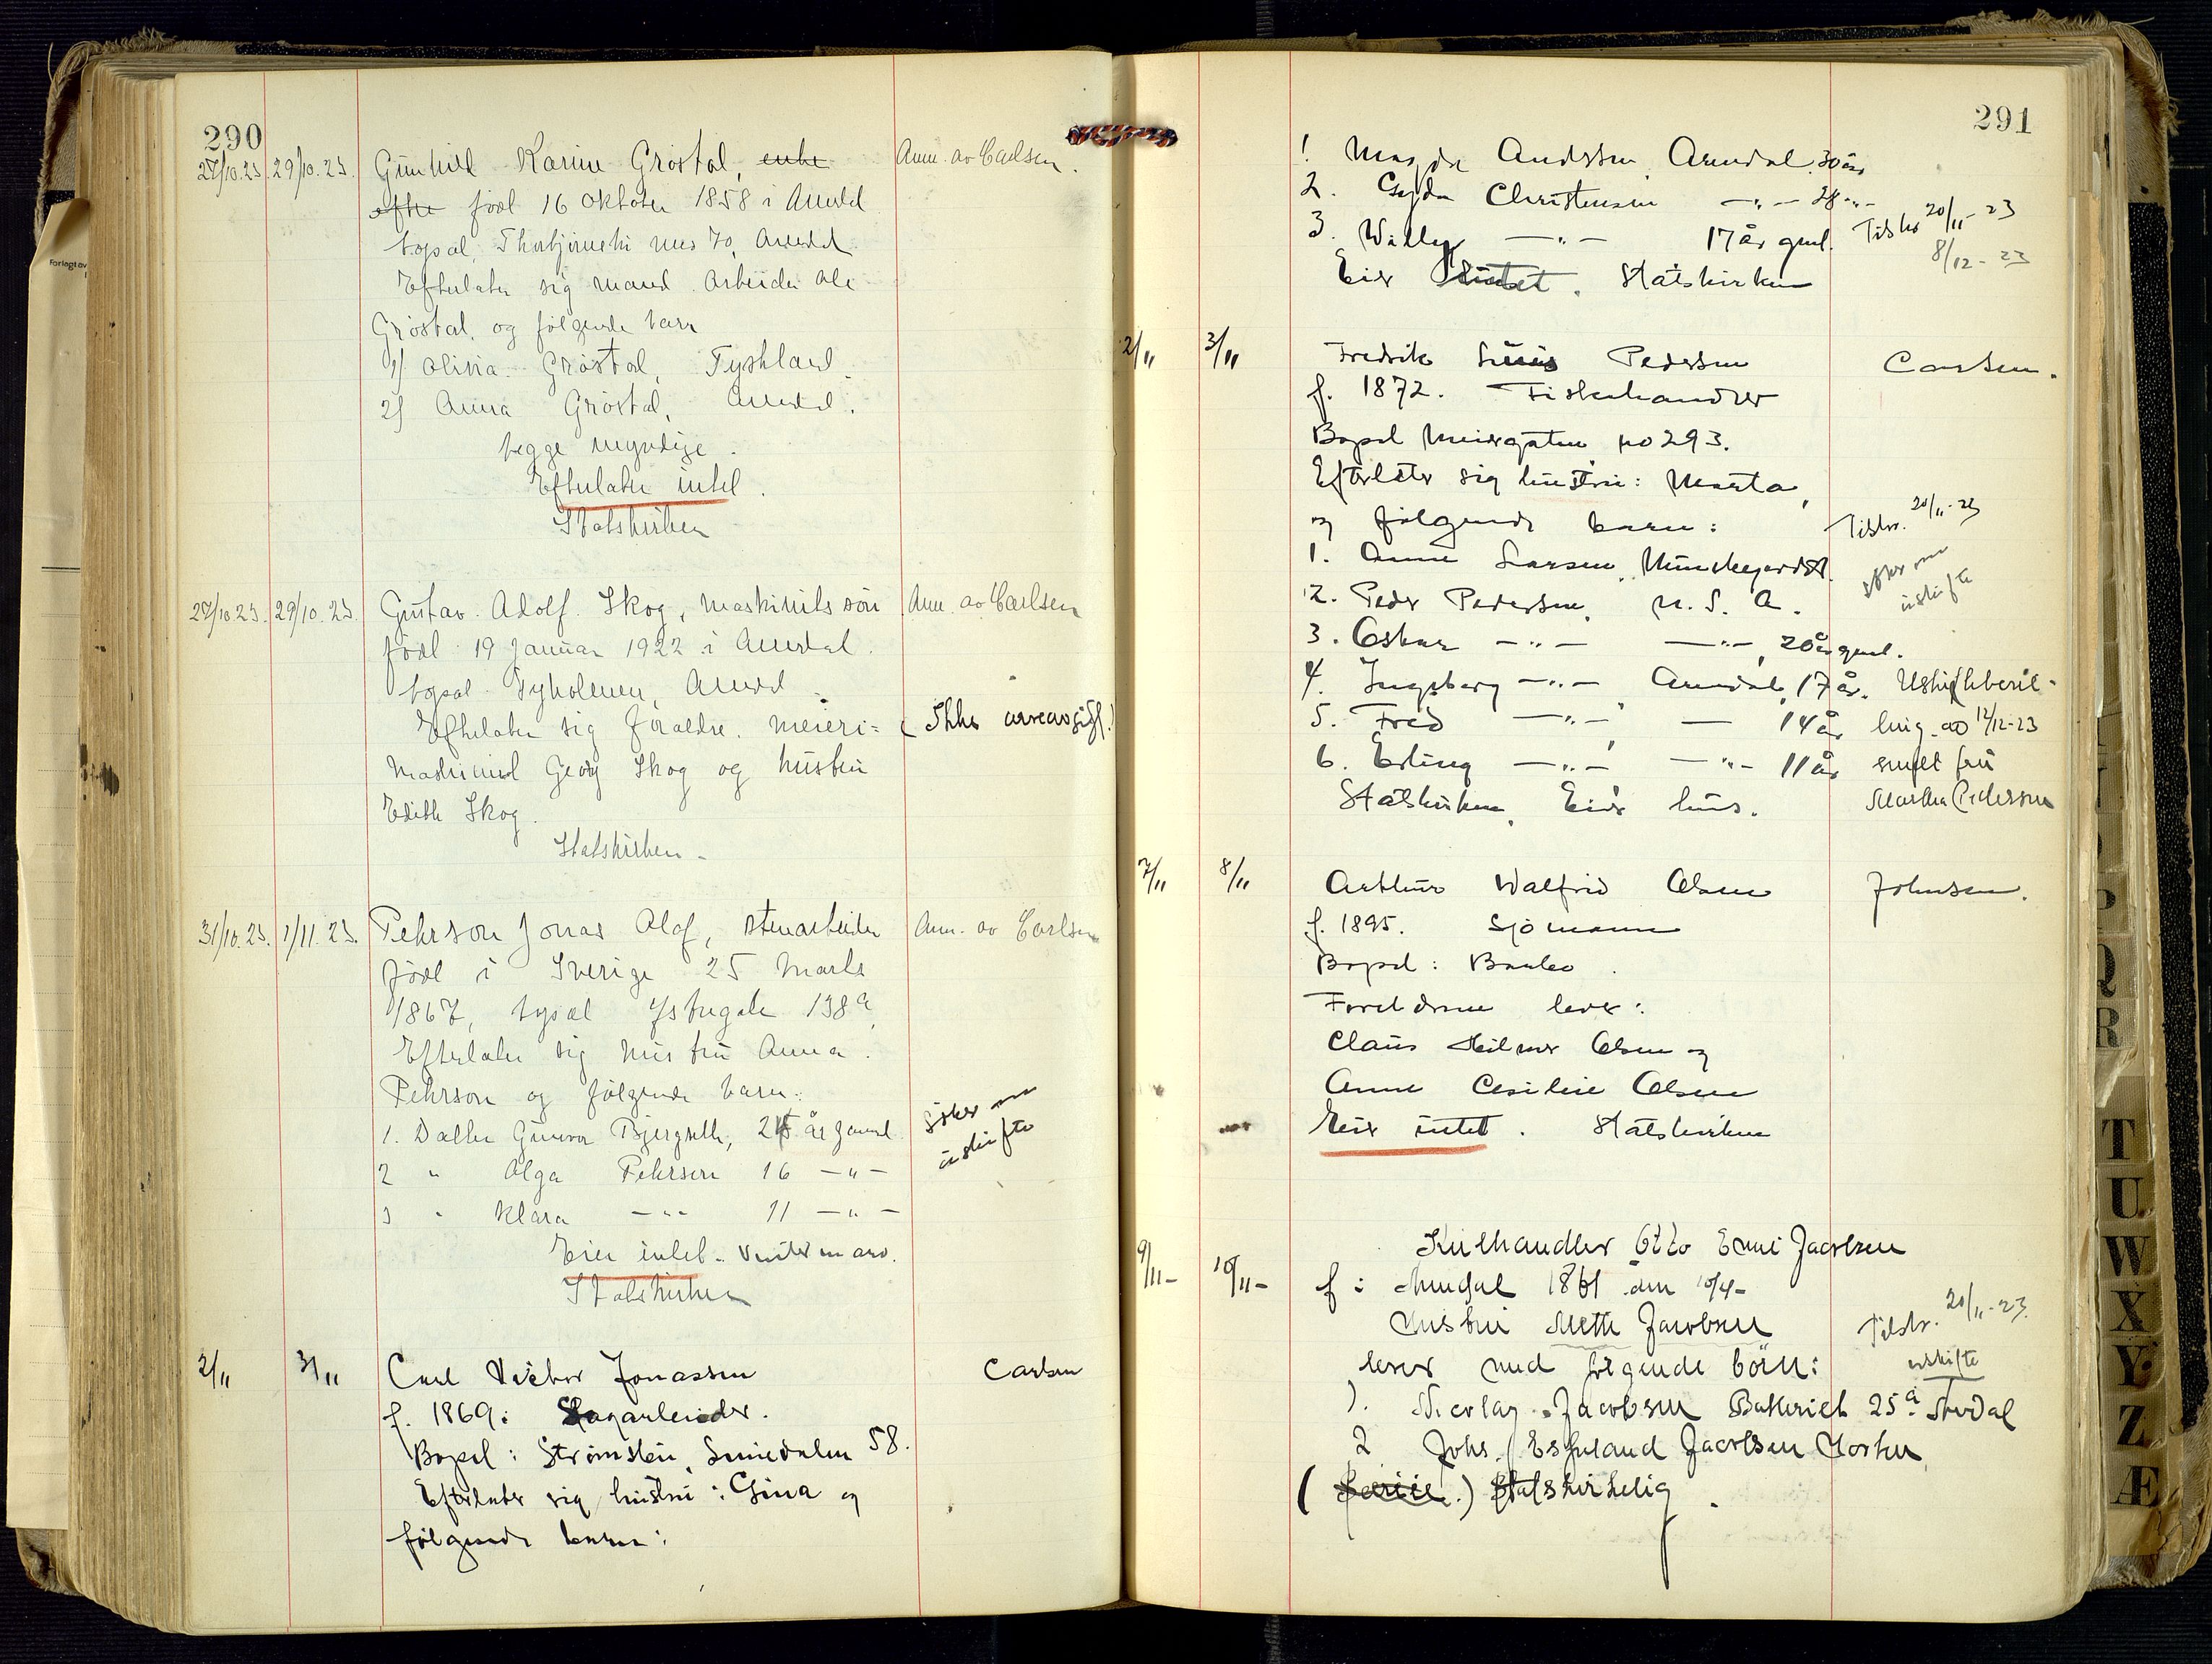 290
27/10.23. 29/10.23. Gunhild Karine Grøstøl, enke Anm. av Carlsen.
efter född 16 Oktober 1858 i Arendal
bopæl, Thorbjørnsbr nus 70, Arendal
Efterlater sig mand. Arbeider Ole
Grøstøl, og følgende barn
1) Olivia Grøstøl, Tyskland.
2) Anna Grøstøl, Arendal.
begge myndige.
Efterlater intet.
Statskirken
27/10 23. 29/10. 23. Gustav Adolf Skog, maskinists søn Anm. av Carlsen
född 19 Januar 1922 i Arendal.
bopæl Tyholmen, Arendal
Efterlater sig foraldre. meieri= (Ikke arveavgift!
maskinist Georg Skog og hustru
Edith Skog.
Statskirken -
31/10. 23. 1/11. 23. Pehrson Jonas Olof, stenarbeider Anm. av Carlsen
född i Sverige 25 Marts
1867, bopæl Ystregate 138a,
Efterlater sig hustru Anna.
Pehrson og følgende barn:
1. Datter Gunvor Bjergseth, 25 år gammel
2 " Olga Pehrson 16 - " -
3 " Klara - " - 11 - " -
Søker om
uskifte
Eier intet. Venter en arv.
Statskirken
2/11 3/11 Carl Victor Jonassen Carlsen
f. 1869: Sagarbeider.
Bopel: Strømsbu, Smiedalen 58.
Efterlater sig hustru: Gina og
følgende barn:
291
1 Magda Anderssen Arendal. 30 år
2. Gyda Christensen - " - 28 - " -
3. Willy - " - 17 år gml. Tilskr 20/11 - 23
8/12 - 23
Eier intet. Statskirken
2/11 3/11 Fredrik Linus Pedersen Carlsen.
f. 1872. Fiskehandler
Bopel Meiergaten no 293.
Efterlater sig hustru: Marta,
og følgende barn: Tilskr. 20/11 - 23
1. Anne Larsen, Munkegardst.
søker om
uskifte
2. Peder Pedersen, U. S. A.
3. Oskar - " - - " -, 20 år gml.
4. Ingeborg - " - Arendal, 17 år. Uskiftebevil-
5. Fred - " -, - 14 år ling. ao 12/12-23
6. Erling - " -, - " - 11 år sendt fru
Statskirken, Eier hus. Martha Pedersen
7/11 8/11 Arthur Walfrid Olsen Johnsen.
f. 1895. Sjömann
Bopel: Barbo.
Foreldrene lever:
Claus Hilmer Olsen og
Anne Cesilie Olsen
Eier intet. Statskirken
9/11- 10/11- Kulhandler Otto Emil Jacobsen
f: Arendal 1861 den 10/4-
Hustru Mette Jacobsen Tilskr. 20/11 - 23.
lever med følgende börn: uskifte
1. Nicolay Jacobsen Batteriet 25a Arendal
2 Johs. Espeland Jacobsen Horten
( ) Statskirkelig.